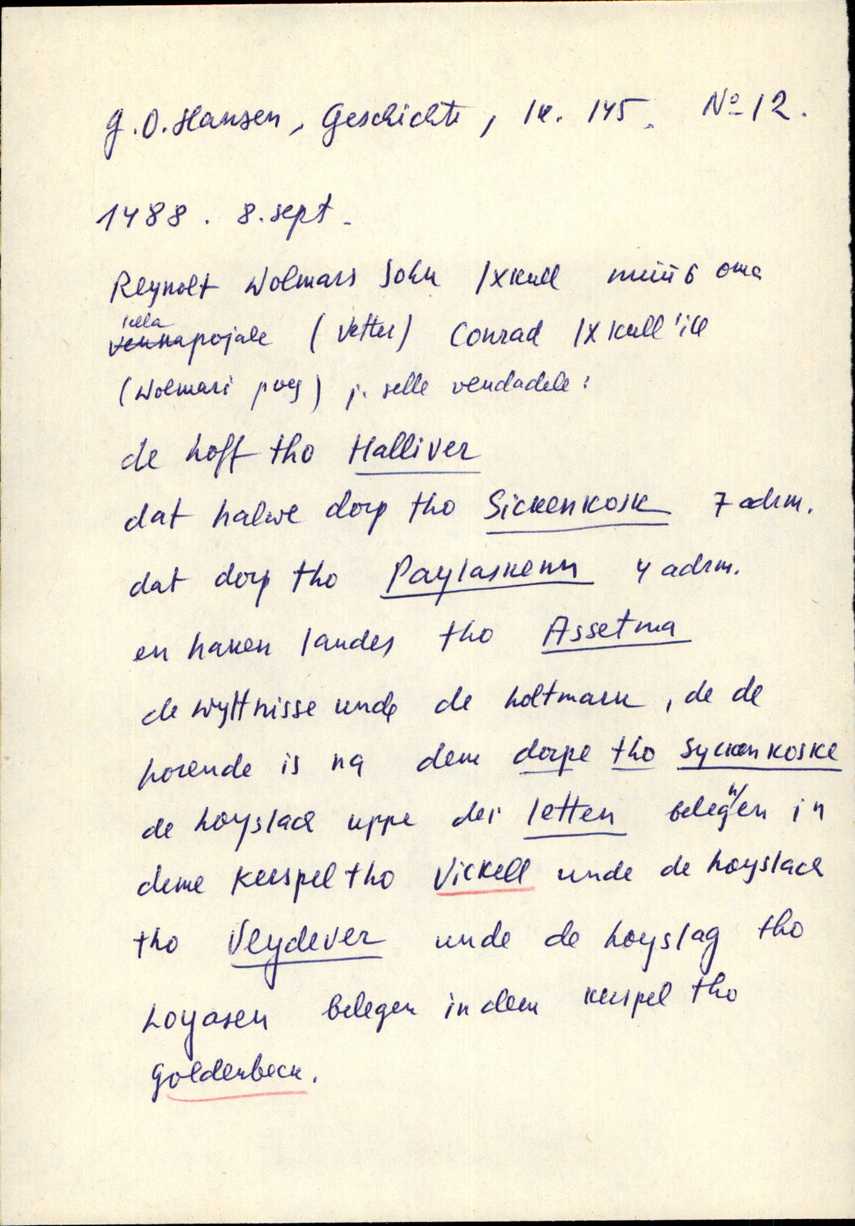 G.O. Hansen, Geschichte, lk. 145. No 12.
1488. 8. sept.
Reynolt Wolmars Sohn Ixkull müüs oma
lella
vennapojale (Vetter) Conrad Ixkull'ile
(Wolmari poeg) j. selle vendadele:
de hoff tho Halliver
dat halwe dorp tho Sickenkosk 7 adrm.
dat dorp tho Paylaskenn 4 adrm.
en haken landes tho Assetma
de wyltnisse unde de holtmark, de de
horende is na dem dorpe tho Syckenkoske
de hoyslack uppe der letten belegen in
deme kerspel tho Vickell unde de hoyslack
tho Veydever unde de hoyslag tho
hoyasen belegen in dem kerspel tho
Goldenbeck.